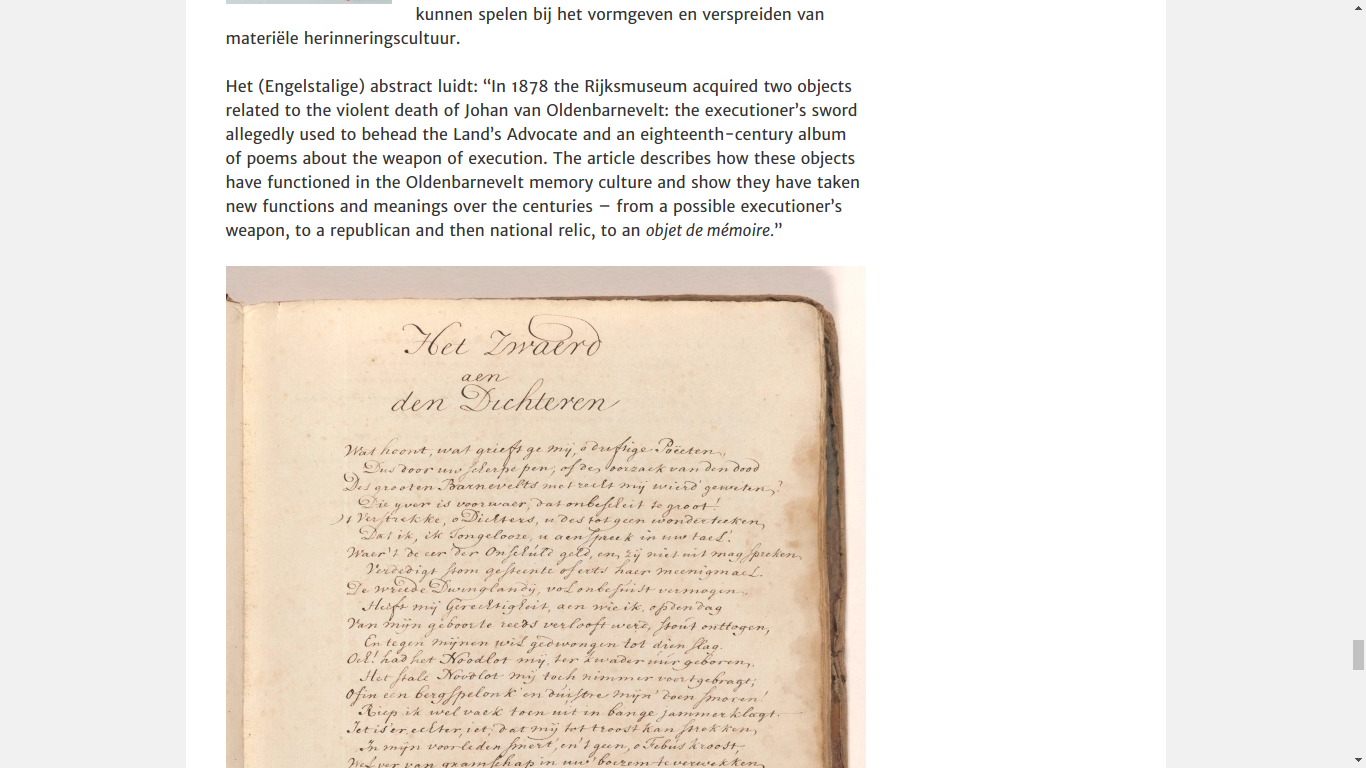 kunnen spelen bij het vormgeven en verspreiden van
materiële herinneringscultuur.
Het (Engelstalige) abstract luidt: “In 1878 the Rijksmuseum acquired two objects
related to the violent death of Johan van Oldenbarnevelt: the executioner’s sword
allegedly used to behead the Land’s Advocate and an eighteenth-century album
of poems about the weapon of execution. The article describes how these objects
have functioned in the Oldenbarnevelt memory culture and show they have taken
new functions and meanings over the centuries – from a possible executioner’s
weapon, to a republican and then national relic, to an objet de mémoire.”
Het Zwaerd
aen
den Dichteren
Wat hoont, wat grieft ge mij, o driftige Poëeten,
Dus door uw scherpe pen, of de oorzaek van den dood
Des grooten Barnevelts met recht mij wierd geweten?
Die yver is voorwaer, dat onbescheit te groot!
't Verstrekke, o Dichters, u des tot geen wonderteeken,
Dat ik, ik Tongelooze, u aenspreek in uw tael:
Waer't de eer der Onschuld geld, en zij niet uit mag spreken,
Verdedigt stom gesteente oferts haer meenigmael.
De wreede Dwinglandij, vol onbesuist vermogen,
Heeft mij Gerechtigheit, aen wie ik, op den dag
Van mijn geboorte reeds verlooft werd, stout onttogen,
En tegen mijnen wil gedwongen tot dien slag.
Och! had het Noodlot mij, ter kwader uur geboren,
Het stale Noodlot mij toch nimmer voortgebragt;
Of in een bergspelonk en duistre mijn doen smoren!
Riep ik wel vaek toen uit in bange jammerklagt.
Iet is'er, echter, iet, dat mij tot troost kan strekken,
In mijn voorleden smert, en 't geen, o Febus kroost,
Wel ver van gramschap in uw boezem te verwekken,